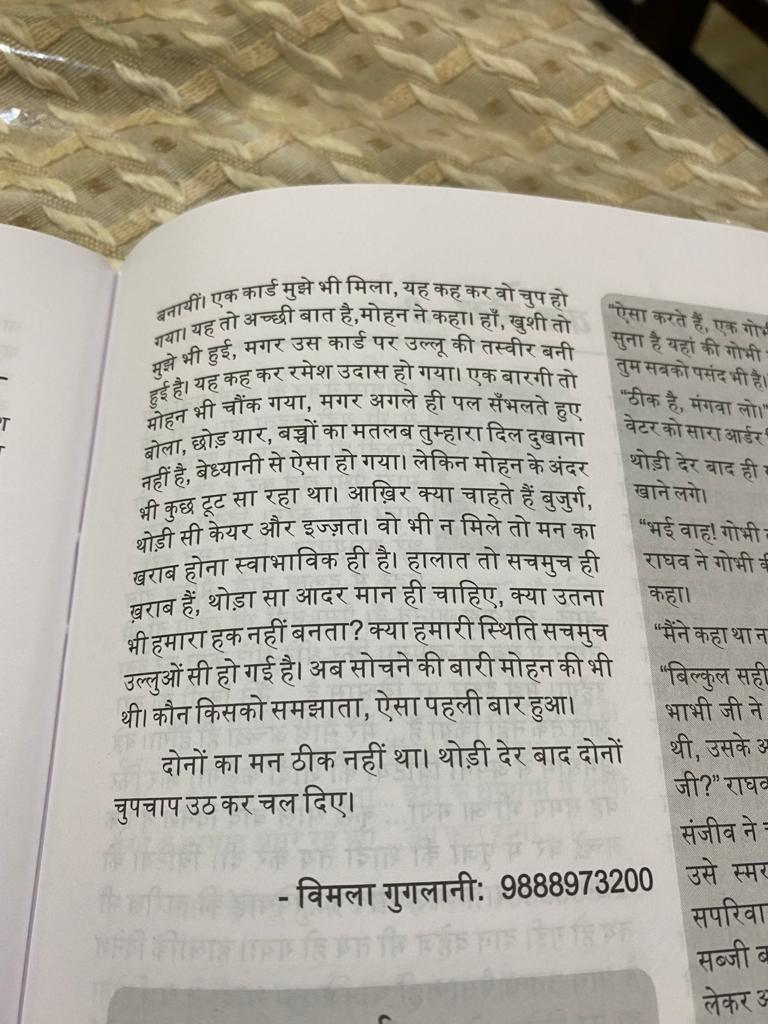 बनायीं। एक कार्ड मुझे भी मिला, यह कह कर वो चुप हो
गया। यह तो अच्छी बात है,मोहन ने कहा। हाँ, खुशी तो
मुझे भी हुई, मगर उस कार्ड पर उल्लू की तस्वीर बनी
हुई है। यह कह कर रमेश उदास हो गया। एक बारगी तो
मोहन भी चौंक गया, मगर अगले ही पल सँभलते हुए
बोला, छोड़ यार, बच्चों का मतलब तुम्हारा दिल दुखाना
नहीं है, बेध्यानी से ऐसा हो गया। लेकिन मोहन के अंदर
भी कुछ टूट सा रहा था। आख़िर क्या चाहते हैं बुजुर्ग,
थोड़ी सी केयर और इज्ज़त। वो भी न मिले तो मन का
ख़राब होना स्वाभाविक ही है। हालात तो सचमुच ही
ख़राब हैं, थोड़ा सा आदर मान ही चाहिए, क्या उतना
भी हमारा हक नहीं बनता? क्या हमारी स्थिति सचमुच
उल्लुओं सी हो गई है। अब सोचने की बारी मोहन की भी
थी। कौन किसको समझाता, ऐसा पहली बार हुआ।
दोनों का मन ठीक नहीं था। थोड़ी देर बाद दोनों
चुपचाप उठ कर चल दिए।
- विमला गुगलानी: 9888973200
"ऐसा करते हैं, एक
सुना है यहां की गोभी
तुम सबको पसंद भी है।
"ठीक है, मंगवा लो।"
वेटर को सारा आर्डर
थोड़ी देर बाद ही
खाने लगे।
"भई वाह! गोभी
राघव ने गोभी
कहा।
"मैंने कहा था
"बिल्कुल सही
भाभी जी ने
थी, उसके
जी?" राघव
संजीव ने
उसे
सब्जी
लेकर